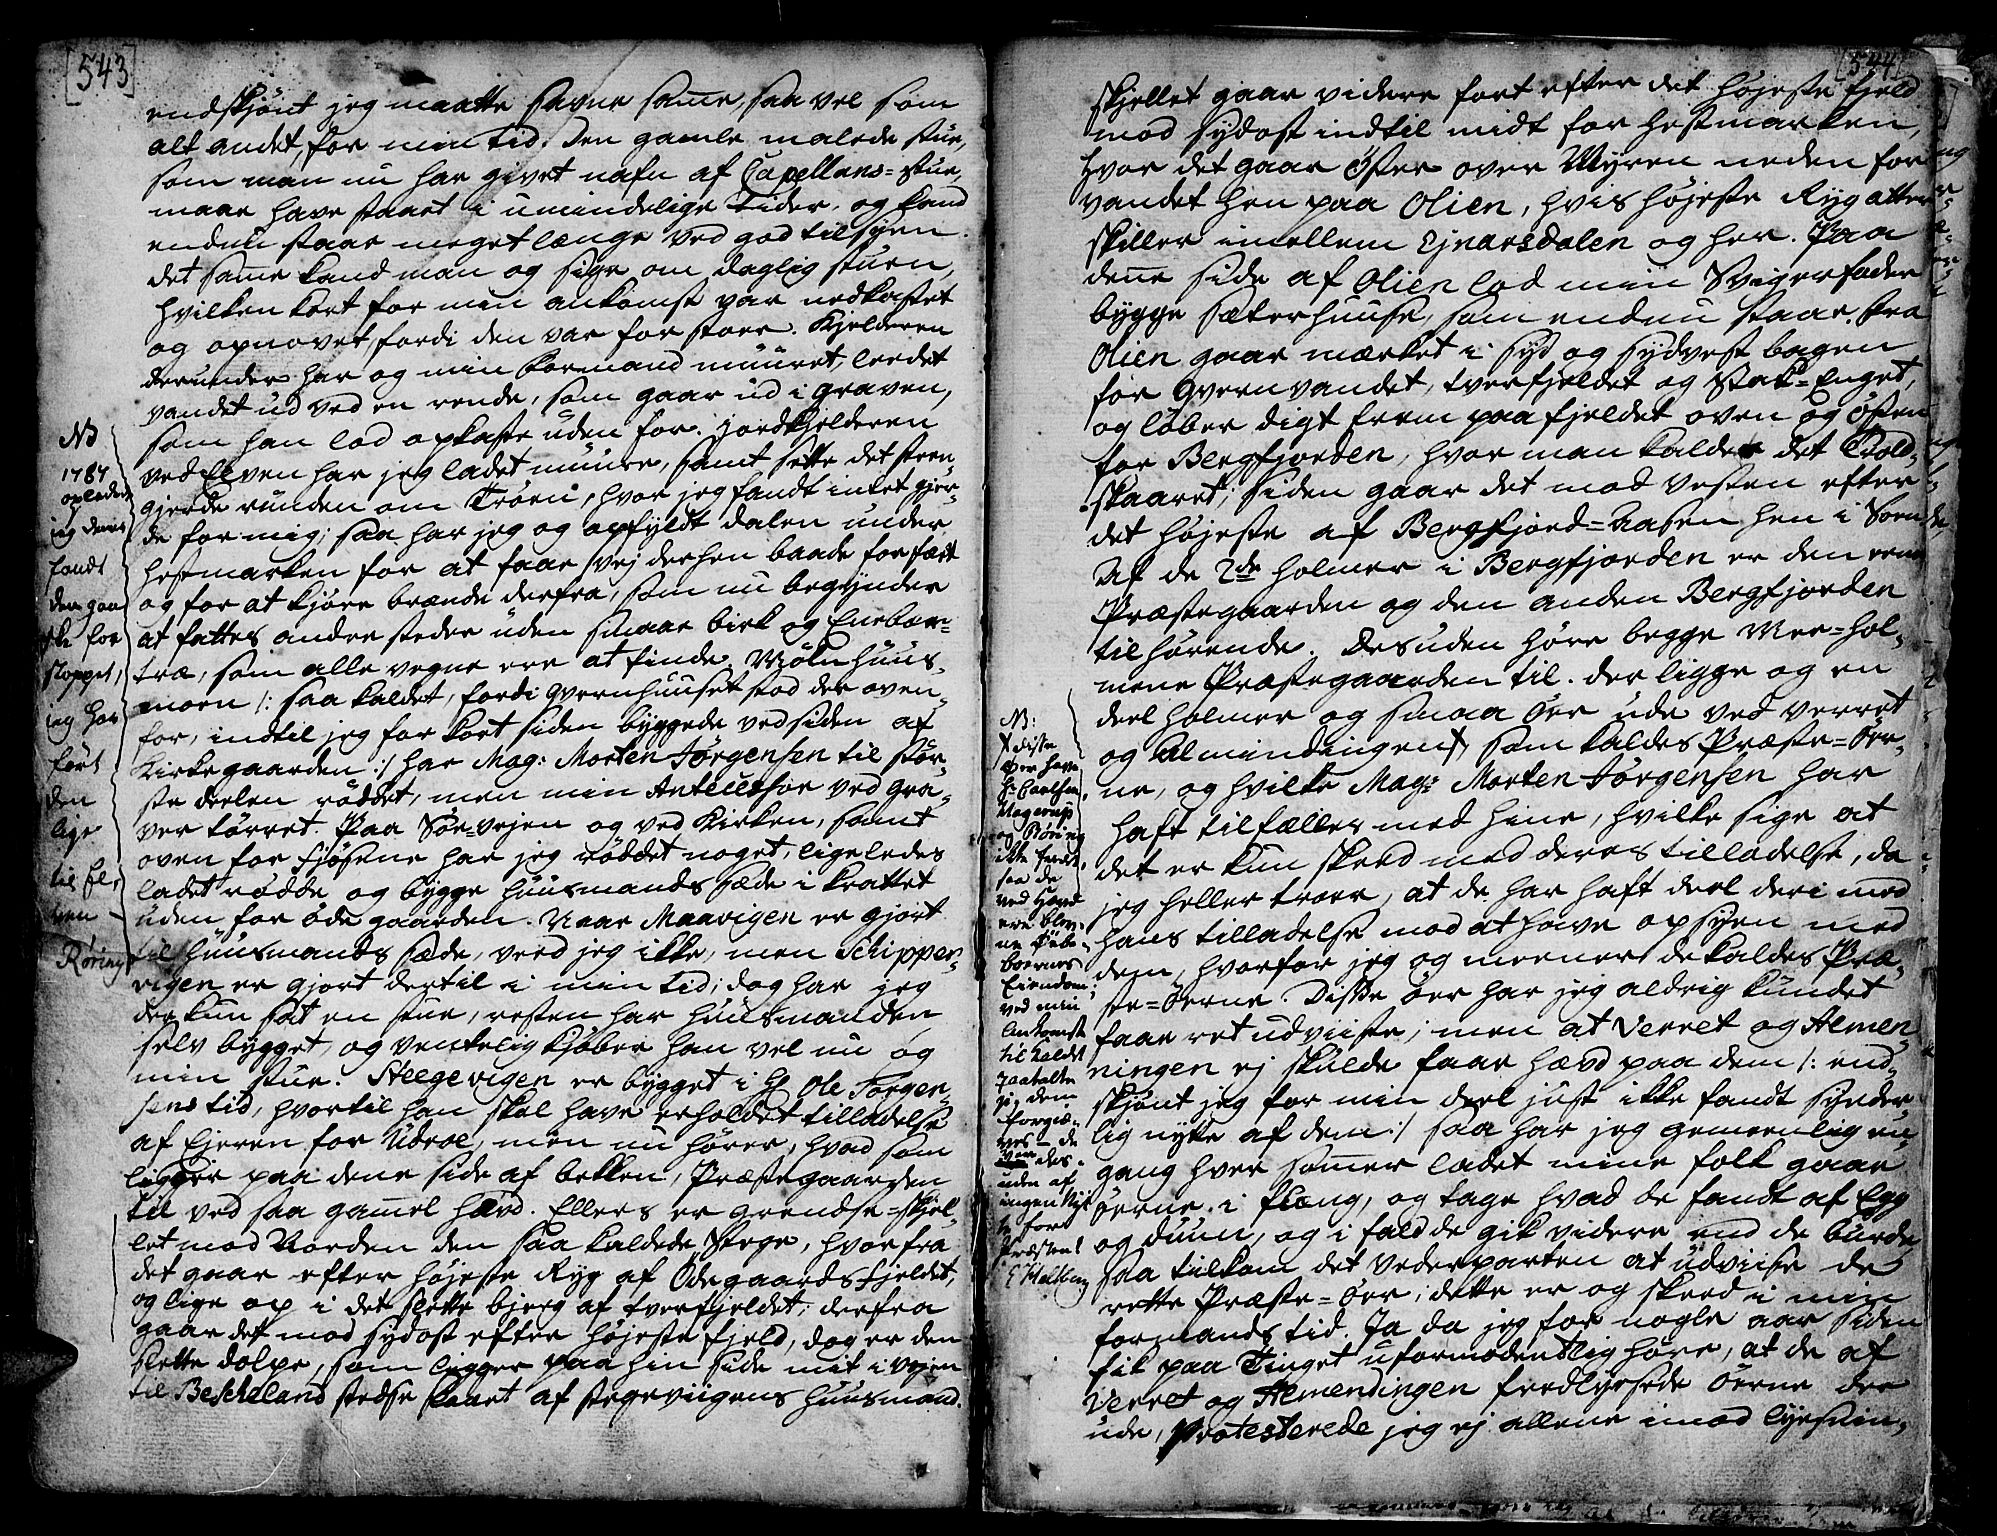 [543]
endskjönt jeg maatte savne same, saa vel som
alt andet, for min tid. Den gamle malede stue,
som man nu har givet nafn af Capellans=stue,
maae have staaet i umindelige tider, og kand
endnu staae meget længe ved god tilsyen.
det same kand man og sige om daglig stuen,
hvilken kort for min ankomst var nedkastet
og opnovet, fordi den var for stoer. Kjelderen
derunder har og min formand muuret, leedet
vandet ud ved en rende, som gaar ud i graven,
som han lod opkaste uden for. jordkjelderen
ved Elven har jeg ladet muure, samt sette det steen
gjerde runden om Tröen, hvor jeg fandt intet gjer-
de for mig; saa har jeg og opfyldt dalen under
hestmarken for at faae vej derhen baade for fæet
og for at kjöre brænde derfra, som nu begynder
at fattes andre steder uden smaae birk og Enebær-
træ, som alle vegne ere at finde. Mölnhuus-
moen /: saa kaldet, fordi qvernhuuset stod der oven-
for, indtil jeg for kort siden byggede ved siden af
Kirkegaarden :/ har Mag: Morten Jörgensen til stör-
ste deelen röddet, men min Antecessor ved gra-
ver törret. Paa Sör=vejen og ved Kirken, samt
oven for fjösene har jeg röddet noget, ligeledes
ladet rödde og bygge huusmands sæde i krattet
uden for öde gaarden. Naar Maavigen er gjort
til huusmands sæde, veed jeg ikke, men Schipper-
vigen er gjort dertil i min tid; dog har jeg
der kun sat en stue, resten har huusmanden
selv bygget, og ventelig kjöber han vel nu og
min stue. Steegevigen er bygget i Hr Ole Jörgen-
sens tid, hvortil han skal have erholdet tilladelse
af Ejeren for Udroe, men nu hörer, hvad som
ligger paa dene side af bekken, Præstegaarden
til ved saa gamel hævd. Ellers er grendse=skjel-
let mod Norden den saa kaldede Stege, hvorfra
det gaar efter höjeste Ryg af Ödegaards fjeldet,
og lige op i det slette bjerg af tverfjeldet; derfra
gaar det mod sydost efter höjeste fjeld, dog er den
slette dolpe, som ligger paa hin side mit i vejen
til Beskeland stedse slaaet af stegeviigens huusmand.
NB
1787
opledede
jeg denne
fandt
den gan
ske for
stoppet,
jeg har
fört
den
lige
til El,
ven –
Röring
[544]
skjellet gaar videre fort efter det höjeste fjeld
mod sydost indtil midt for hestmarken,
hvor det gaar Öster over Myren neden for
vandet hen paa Olien, hvis höjeste Ryg atter
skiller imellem Ejnarsdalen og her. Paa
dene side af Olien lod min Svigerfader
bygge Sæterhuuse, som endnu staae. Fra
Olien gaar mærket i syd og sydvest bagen
for Qvernvandet, tverfjeldet og Stak=Enget,
og löber digt frem paa fjeldet oven og östen
for Bergfjorden, hvor man kalder det Told-
skaaret; siden gaar det mod Vesten efter
det höjeste af Bergfjord=Aasen hen i Söen
Af de 2de holmer i Bergfjorden er den eene
Præstegaarden og den anden Bergfjorden
tilhörende. Desuden höre begge Mee=hol-
mene Præstegaarden til. der ligge og en
deel holmer og smaa Öer ude ved Verret
og Almindingen ✝, som kaldes Præste=Öer-
ne, og hvilke Mag: Morten Jörgensen har
haft tilfælles med hine, hvilke sige at
det er kun skeed med deres tilladelse, da
jeg heller troer, at de har haft deel deri med
hans tilladelse mod at have opsyen med
dem, hvorfor jeg og meener de kaldes Præ-
ste=Öerne. Disse öer har jeg aldrig kundet
faae ret udviiste; men at Verret og Almen
ningen ej skulde faae hævd paa dem /: end-
skjönt jeg for min deel just ikke fandt synder
lig nytte af dem :/ saa har jeg gemeenlig en
gang hver somer ladet mine folk gaae
öerne i fleng, og tage hvad de fandt af Egg
og duun, og i fald de gik videre end de burde
saa tilkom det Vederparten at udviise de
rette Præste=öer; dette er og skeed i min
formands tid. Ja da jeg for nogle aar siden
fik paa Tinget uformodentlig höre, at de af
Verret og Almendingen fredlyssede öerne der
ude, Protesterede jeg ej allene imod lysnin-
NB:
✝ disse
Öer have
Hr Carlsen,
Hagerup
og Röring
ikke fredet
saa de
ved Hævd
ere blev-
ne Röbe-
boernes
Eiendom;
ved min
Ankomst
til Kaldet
paatalte
jeg dem
forgiæ-
ves – de
var des-
uden af
ingen Nyt
te for
Præsten!
E Hallberg